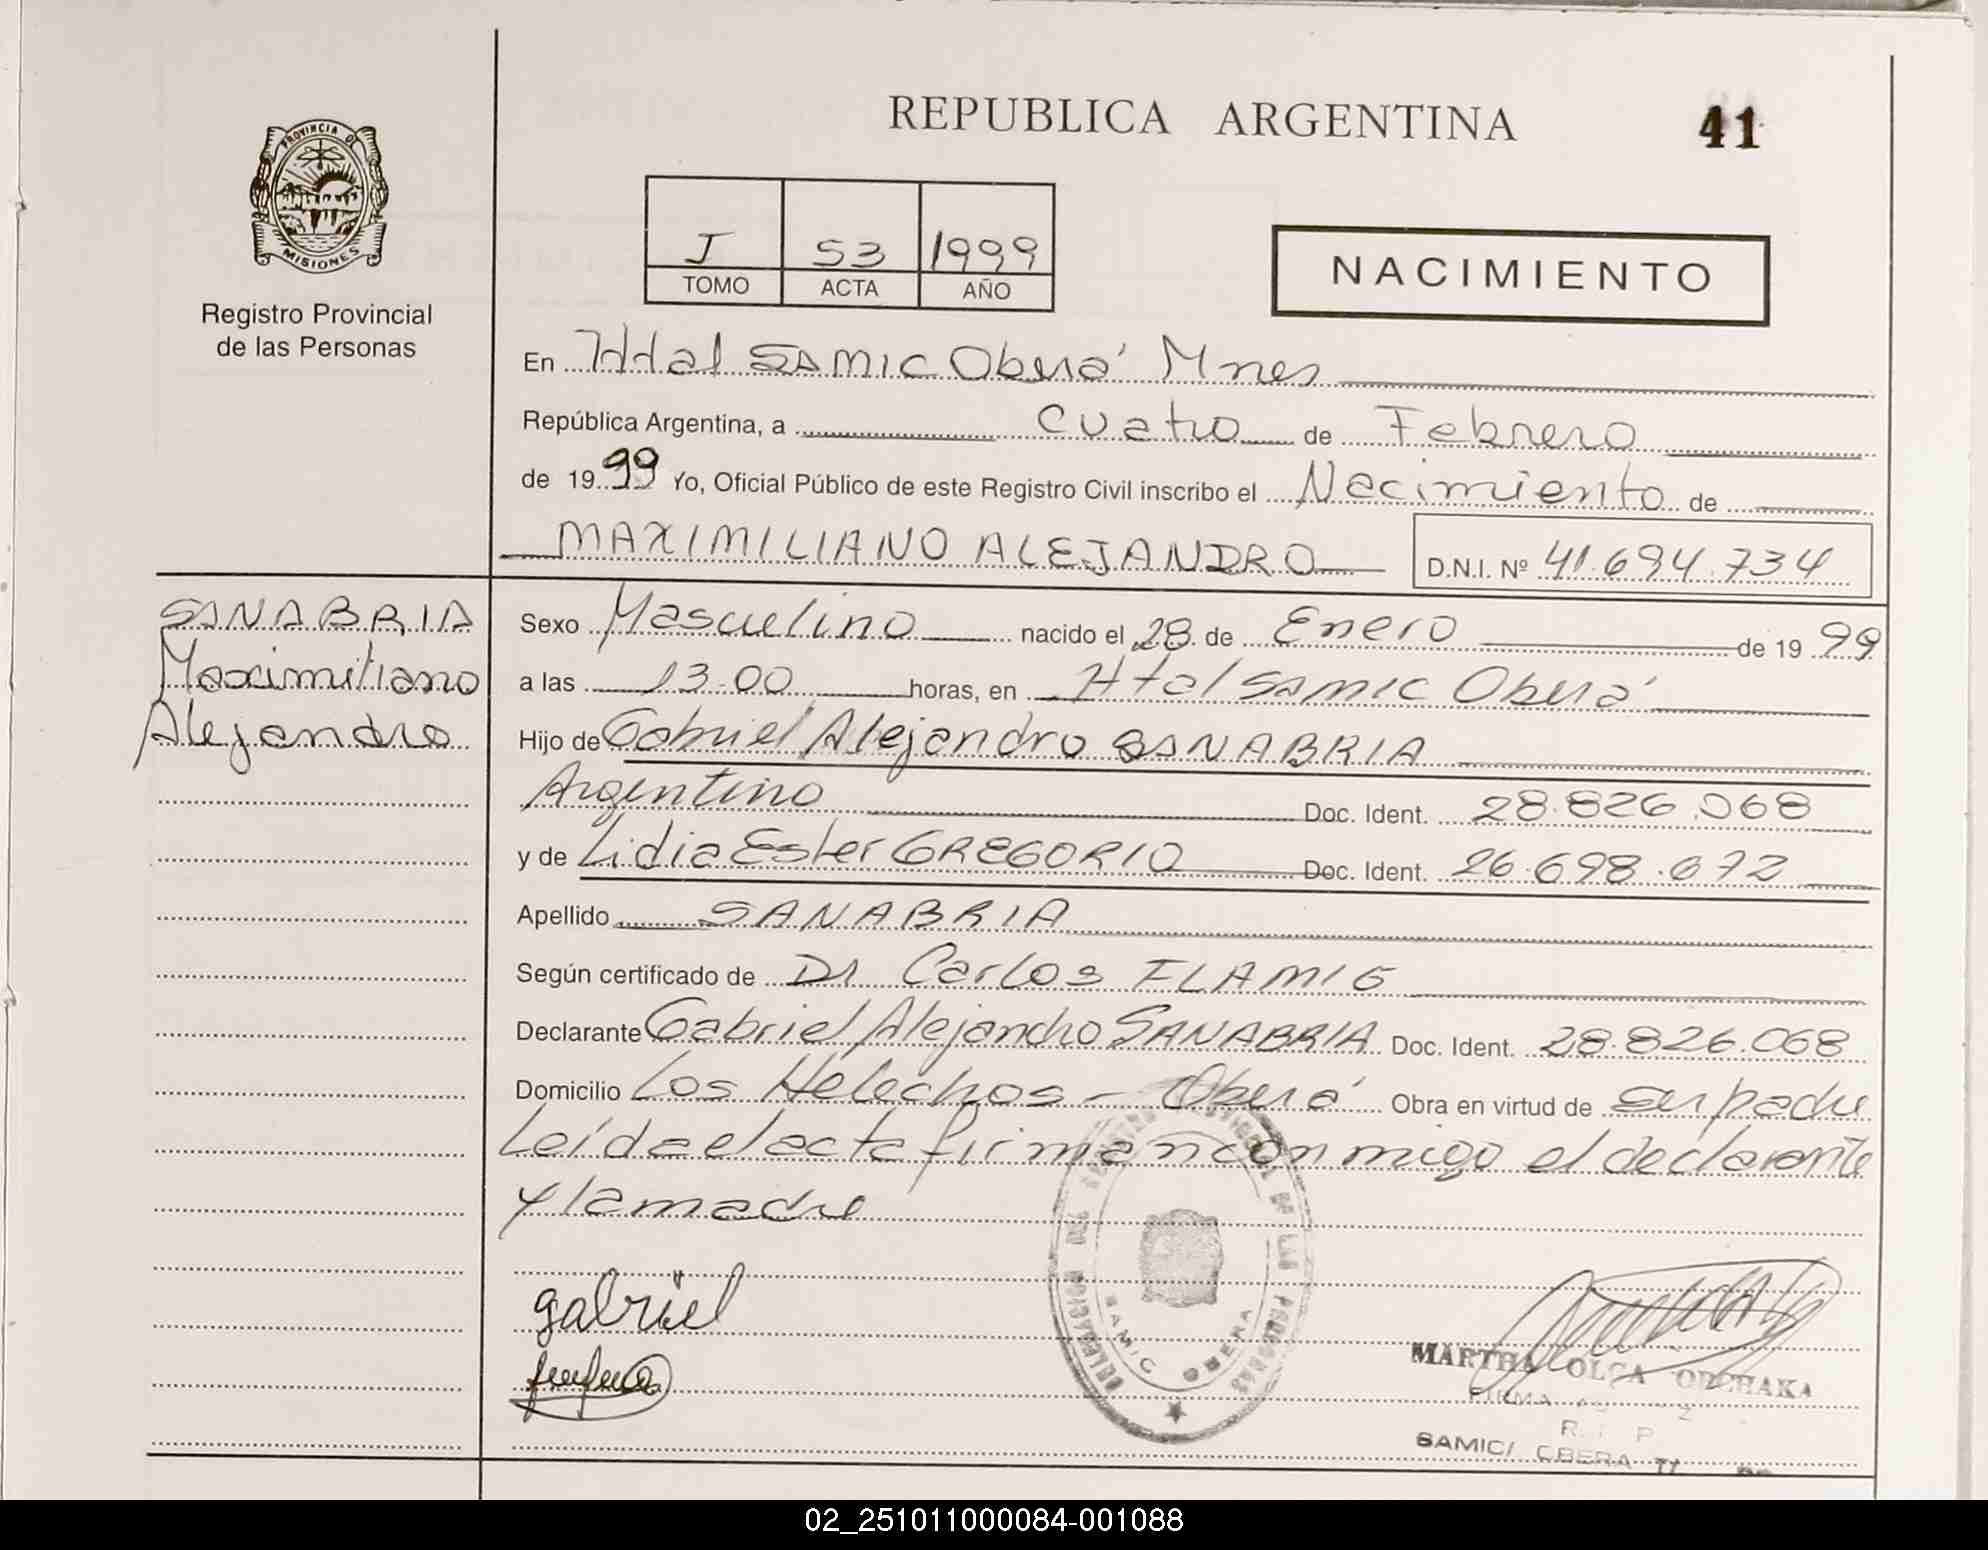 REPUBLICA ARGENTINA
41
PROVINCIA DE
MISIONES
Registro Provincial
de las Personas
I 53 1999
TOMO ACTA AÑO
NACIMIENTO
En Htal SAMIC Oberá Mnes
República Argentina, a cuatro de Febrero
de 1999 Yo, Oficial Público de este Registro Civil inscribo el Nacimiento de
MAXIMILIANO ALEJANDRO D.N.I. Nº 41.694.734
SANABRIA
Maximiliano
Alejandro
Sexo Masculino nacido el 28 de Enero de 1999
a las 13.00 horas, en Htal SAMIC Oberá
Hijo de Gabriel Alejandro SANABRIA
Argentino Doc. Ident. 28.826.068
y de Lidia Ester GREGORIO Doc. Ident. 26.698.672
Apellido SANABRIA
Según certificado de Dr Carlos FLAMIG
Declarante Gabriel Alejandro SANABRIA Doc. Ident. 28.826.068
Domicilio Los Helechos - Oberá Obra en virtud de ser padre
Leída el acta firman conmigo el declarante
y la madre
gabriel
SAMIC OBERA
MARTHA OLGA
FIRMA
SAMIC/ OBERA
02_251011000084-001088